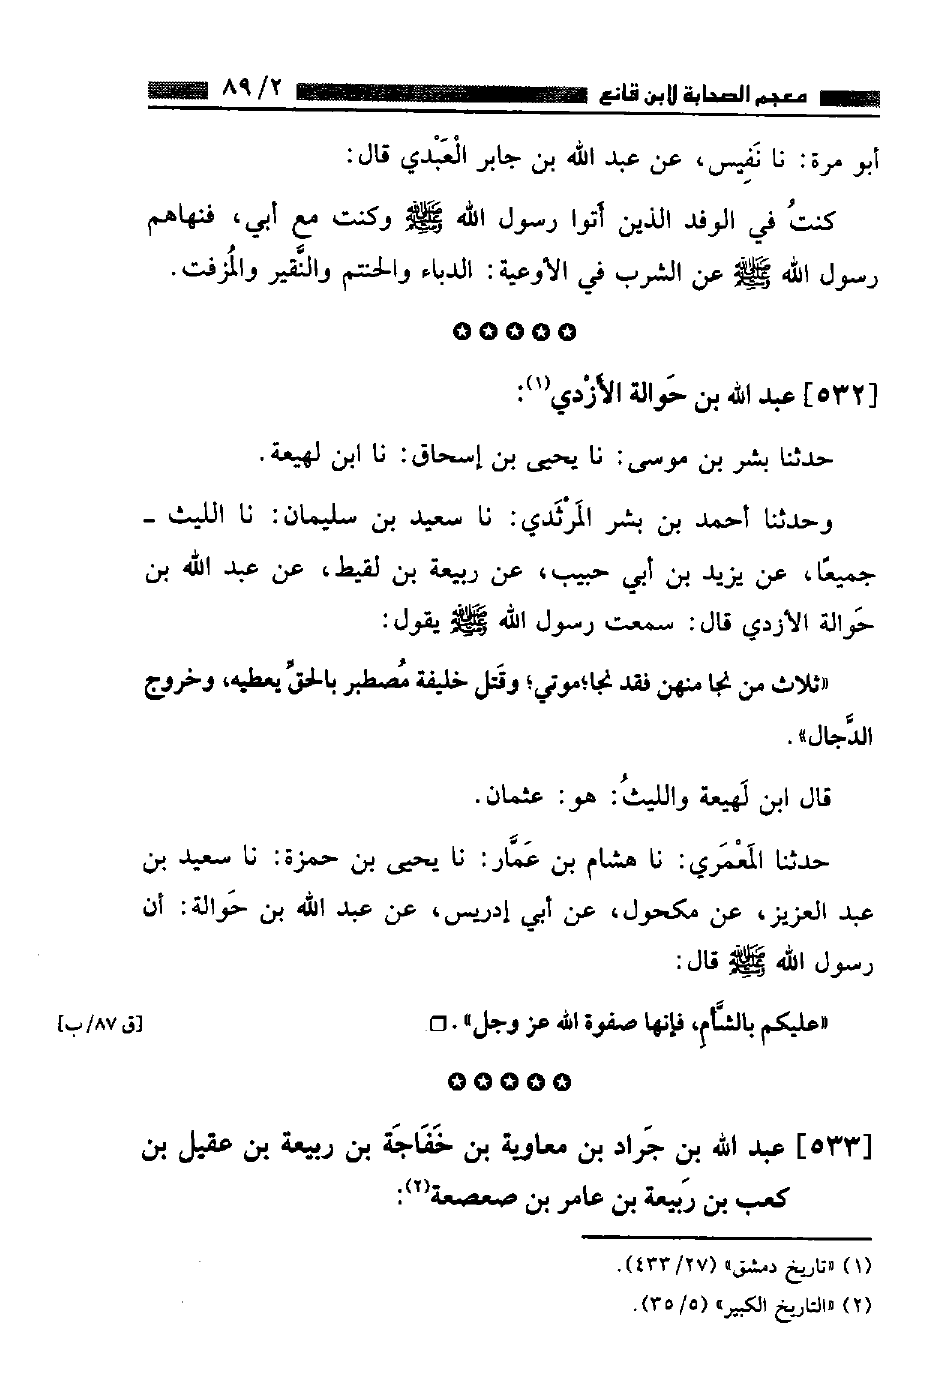 معجم الصحابة لابن قانع ٨٩/٢
أبو مرة: نا نَفِيس، عن عبد الله بن جابر الْعَبْدي قال:
كنتُ في الوفد الذين أتوا رسول الله ﷺ وكنت مع أبي، فنهاهم
رسول الله ﷺ عن الشرب في الأوعية: الدباء والحنتم والنَّقير والمُزفت.
✪ ✪ ✪ ✪ ✪
[٥٣٢] عبد الله بن حَوالة الأزْدي(١):
حدثنا بشر بن موسى: نا يحيى بن إسحاق: نا ابن لهيعة.
وحدثنا أحمد بن بشر المَرْثَدي: نا سعيد بن سليمان: نا الليث ـ
جميعًا، عن يزيد بن أبي حبيب، عن ربيعة بن لقيط، عن عبد الله بن
حَوالة الأزدي قال: سمعت رسول الله ﷺ يقول:
«ثلاث من نجا منهن فقد نجا؛موتي؛ وقَتل خليفة مُصطبر بالحقِّ يعطيه، وخروج
الدَّجال».
قال ابن لَهيعة والليثُ: هو: عثمان.
حدثنا المَعْمَري: نا هشام بن عَمَّار: نا يحيى بن حمزة: نا سعيد بن
عبد العزيز، عن مكحول، عن أبي إدريس، عن عبد الله بن حَوالة: أن
رسول الله ﷺ قال:
«عليكم بالشَّأمِ، فإنها صفوة الله عز وجل». □ [ق ٨٧/ب]
✪ ✪ ✪ ✪ ✪
[٥٣٣] عبد الله بن جَراد بن معاوية بن خَفَاجَة بن ربيعة بن عقيل بن
كعب بن رَبيعة بن عامر بن صعصعة(٢):
(١) «تاريخ دمشق» (٤٣٣/٢٧).
(٢) «التاريخ الكبير» (٣٥/٥).